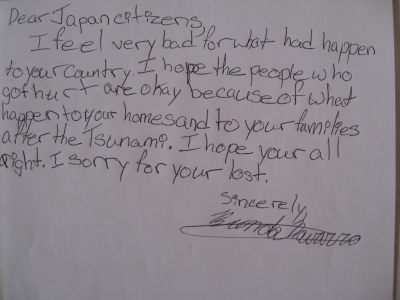 Dear Japan citizens,
I feel very bad for what had happen
to your country. I hope the people who
got hurt are okay because of what
happen to your homes and to your families
after the Tsunami. I hope your all
right. I sorry for your lost.
Sincerely,
Navarro